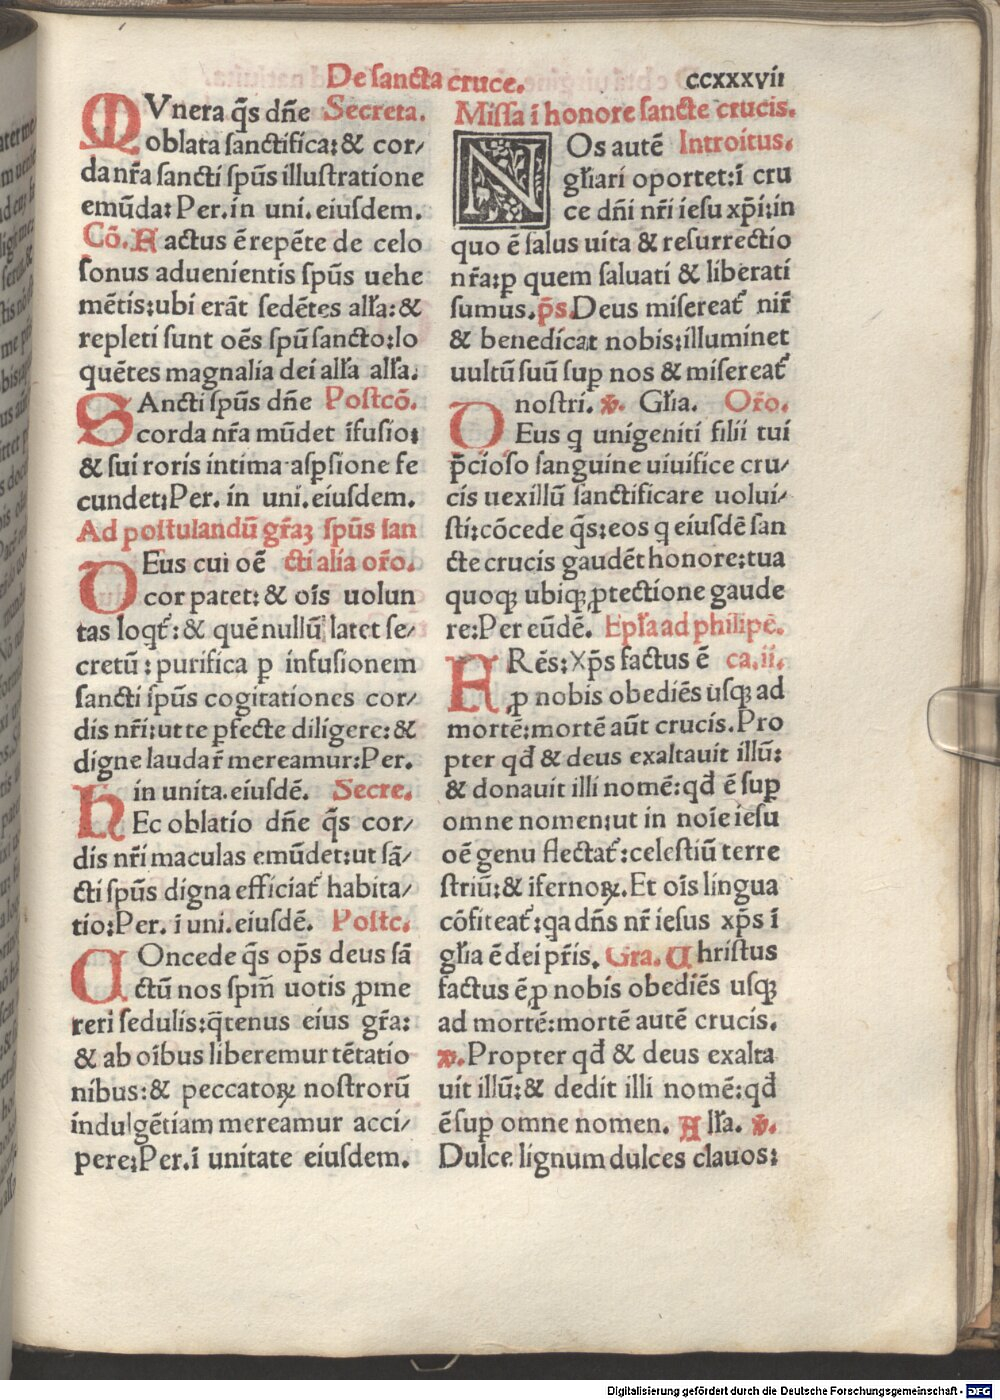 De sancta cruce. ccxxxvii
MVnera q̃s dñe Secreta.
oblata sanctifica: & cor/
da nr̃a sancti spũs illustratione
emũda: Per. in uni. eiusdem.
Cõ. Factus ẽ repẽte de celo
sonus aduenientis spũs uehe
mẽtis: ubi erãt sedẽtes alĩa: &
repleti sunt oẽs spũ sancto: lo
quẽtes magnalia dei alĩa alĩa.
SAncti spũs dñe Postcõ.
corda nr̃a mũdet ĩfusio:
& sui roris intima aspsione fe
cundet: Per. in uni. eiusdem.
Ad postulandũ gr̃aꝫ spũs san
DEus cui oẽ cti alia or̃o.
cor patet: & oĩs uolun
tas loqt̃: & quẽ nullũ latet se/
cretũ: purifica ꝑ infusionem
sancti spũs cogitationes cor/
dis nr̃i: ut te ꝑfecte diligere: &
digne laudar̃ mereamur: Per.
in unita. eiusdẽ. Secre.
HEc oblatio dñe q̃s cor/
dis nr̃i maculas emũdet: ut sã/
cti spũs digna efficiat̃ habita/
tio: Per. ĩ uni. eiusdẽ. Postc.
COncede q̃s op̃s deus sã
ctũ nos spm̃ uotis ꝓme
reri sedulis: q̃tenus eius gr̃a:
& ab oĩbus liberemur tẽtatio
nibus: & peccatoꝝ nostrorũ
indulgẽtiam mereamur acci/
pere: Per. ĩ unitate eiusdem.
Missa ĩ honore sancte crucis.
NOs autẽ Introitus.
gl̃iari oportet: ĩ cru
ce dñi nr̃i iesu xp̃i: in
quo ẽ salus uita & resurrectio
nr̃a: ꝑ quem saluati & liberati
sumus. p̃s. Deus misereat̃ nir̃
& benedicat nobis: illuminet
uultũ suũ suꝑ nos & misereat̃
nostri. ꝟ. Gl̃ia. Or̃o.
DEus q unigeniti filii tui
p̃cioso sanguine uiuifice cru/
cis uexillũ sanctificare uolui/
sti: cõcede q̃s: eos q eiusdẽ san
cte crucis gaudẽt honore: tua
quoqꝫ ubiqꝫ ꝓtectione gaude
re: Per eũdẽ. Epl̃a ad philipẽ.
FRẽs: Xp̃s factus ẽ ca. ii.
ꝓ nobis obediẽs usqꝫ ad
mortẽ: mortẽ aũt crucis. Pro
pter qd̃ & deus exaltauit illũ:
& donauit illi nomẽ: qd̃ ẽ suꝑ
omne nomen: ut in noĩe iesu
oẽ genu flectat̃: celestiũ terre
striũ: & ĩfernoꝝ. Et oĩs lingua
cõfiteat̃: qa dñs nr̃ iesus xp̃s ĩ
gl̃ia ẽ dei pr̃is. Gra. Christus
factus ẽ ꝓ nobis obediẽs usqꝫ
ad mortẽ: mortẽ autẽ crucis.
ꝟ. Propter qd̃ & deus exalta
uit illũ: & dedit illi nomẽ: qd̃
ẽ suꝑ omne nomen. All̃a. ꝟ.
Dulce lignum dulces clauos:
Digitalisierung gefördert durch die Deutsche Forschungsgemeinschaft - DFG